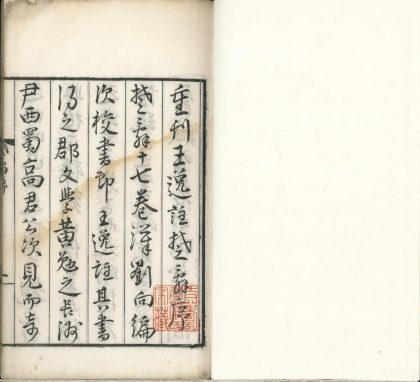 重刊王逸註楚辭序
楚辭十七卷漢劉向編
次校書郎王逸註其書
得之郡文學黃勉之長洲
尹西蜀高君公次見而奇